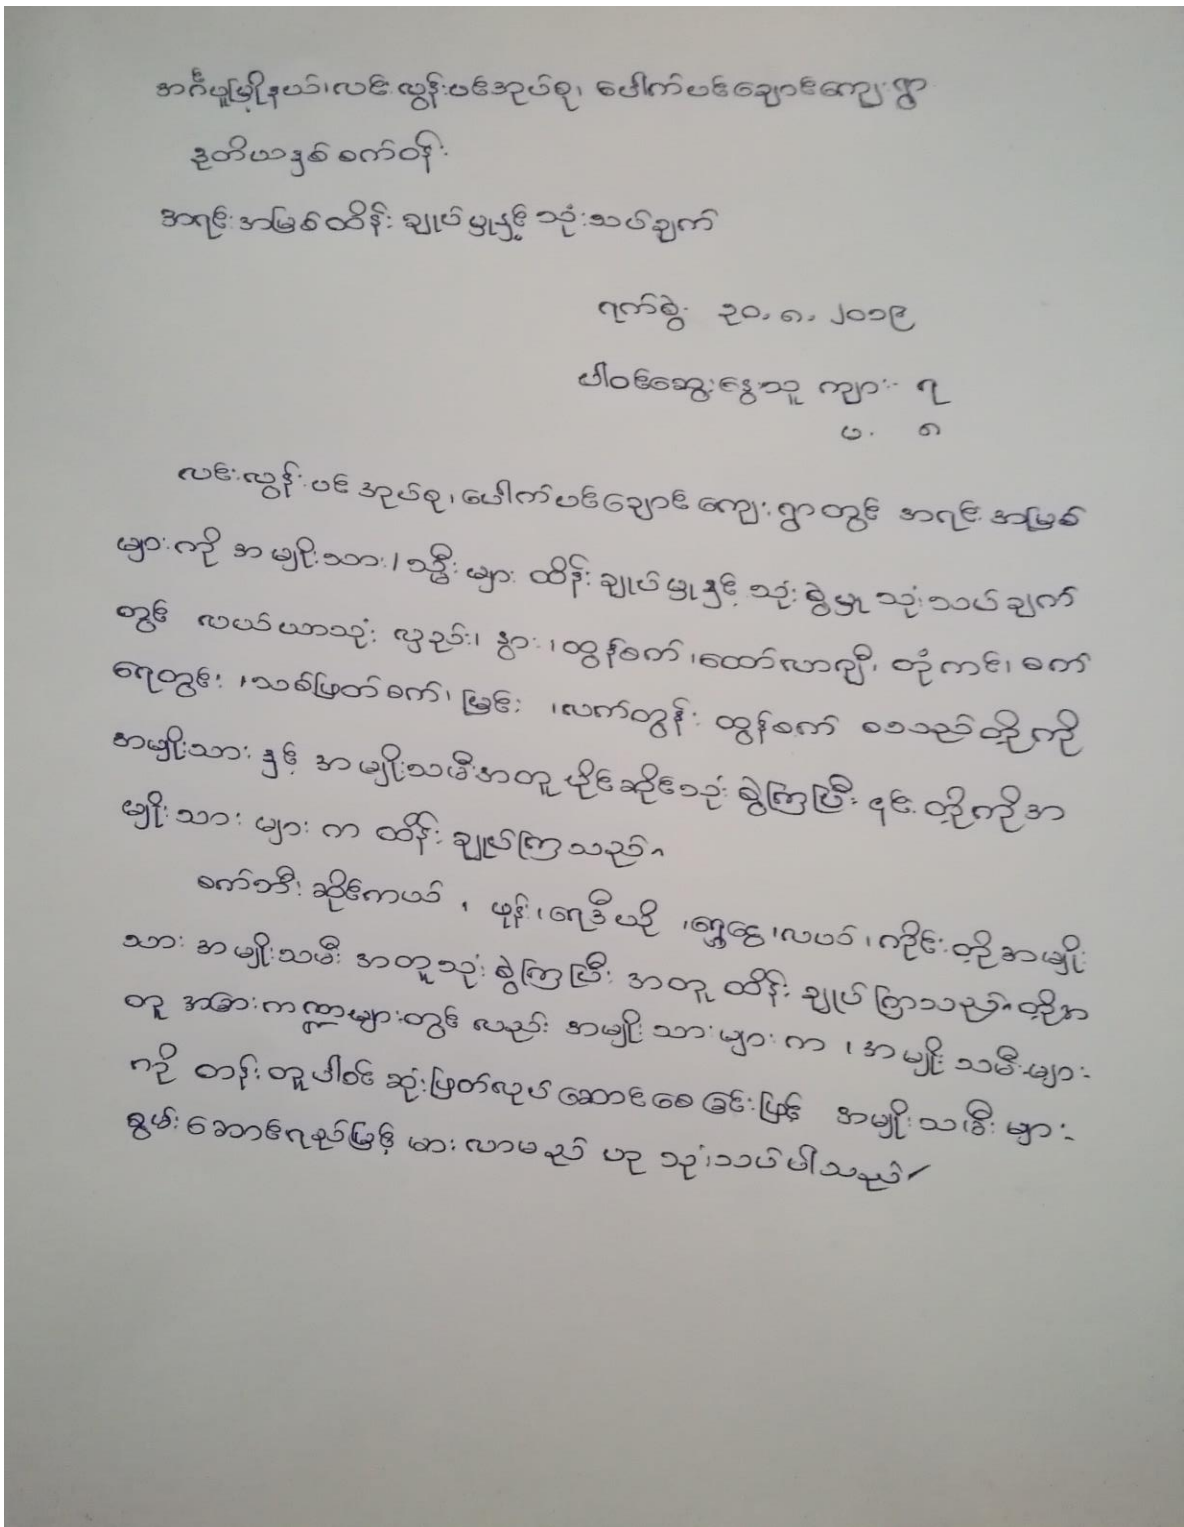 အင်္ဂပူမြို့နယ်၊လင်းလွန်းပင်အုပ်စု၊ ပေါက်ပင်ချောင်ကျေးရွာ
ဒုတိယနှစ်စက်ဝန်း
အရင်းအမြစ်ထိန်းချုပ်မှုနှင့် သုံးသပ်ချက်
ရက်စွဲ- ၃၀.၈.၂၀၁၉
ပါဝင်ဆွေးနွေးသူ ကျား- ၇
မ- ၈
လင်းလွန်းပင်အုပ်စု၊ပေါက်ပင်ချောင်ကျေးရွာတွင် အရင်းအမြစ်
များကို အမျိုးသား/သ္မီးများ ထိန်းချုပ်မှုနှင့် သုံးစွဲမှု သုံးသပ်ချက်
တွင် လယ်ယာသုံး လှည်း၊ နွား၊ထွန်စက်၊ထော်လာဂျီ၊ တုံကင်၊ စက်
ရေတွင်း၊သစ်ဖြတ်စက်၊ မြင်း၊လက်တွန်းထွန်စက် စသည်တို့ကို
အမျိုးသားနှင့် အမျိုးသမီးအတူပိုင်ဆိုင်သုံးစွဲကြပြီး ၎င်းတို့ကိုအ
မျိုးသားများက ထိန်းချုပ်ကြသည်။
စက်ဘီး ဆိုင်ကယ်၊ ဖုန်း၊ရေဒီယို၊ရွှေငွေ၊လယ်၊ကိုင်းတို့အမျိုး
သားအမျိုးသမီးအတူသုံးစွဲကြပြီး အတူထိန်းချုပ်ကြသည်။တို့အ
တူ အခြားကဏ္ဍများတွင်လည်း အမျိုးသားများက၊အမျိုးသမီးများ
ကို တန်းတူပါဝင်ဆုံးဖြတ်လုပ်ဆောင်စေခြင်းဖြင့် အမျိုးသမီးများ
စွမ်းဆောင်ရည်မြင့်မားလာမည် ဟု သုံးသပ်ပါသည်။